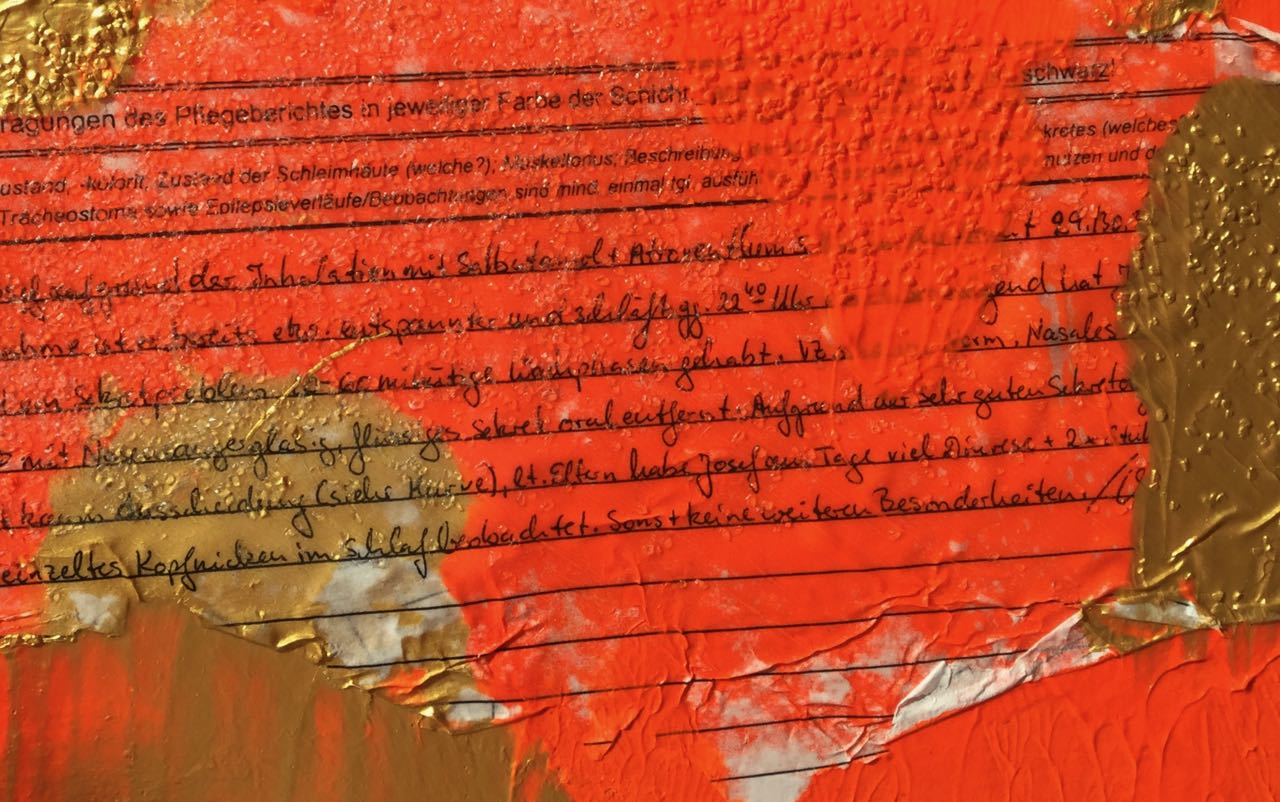 schwarz!
ragungen des Pflegeberichtes in jeweiliger Farbe der Schicht
kretes (welches
ustand, -kolorit, Zustand der Schleimhäute (welche?), Muskeltonus, Beschreibung
nutzen und d
Tracheostoma sowie Epilepsieverläufe/Beobachtungen sind mind. einmal tgl. ausfüh
aufgrund der Inhalation mit Salbutamol + Atroventhum s t 29./30.
ahme ist er bereits etw. entspannter und schläft gg. 22⁴⁰ Uhr gend hat
minütige Wachphasen gehabt. VZ. orm. Nasales
mit flüssiges Sekret oral entfernt. Aufgrund der sehr guten Sekreto
kaum Ausscheidung (siehe Kurve), lt. Eltern habe Josef am Tage viel Diurese + 2x Stuhl
einzeltes Kopfnicken im Schlaf beobachtet. Sonst keine weiteren Besonderheiten.